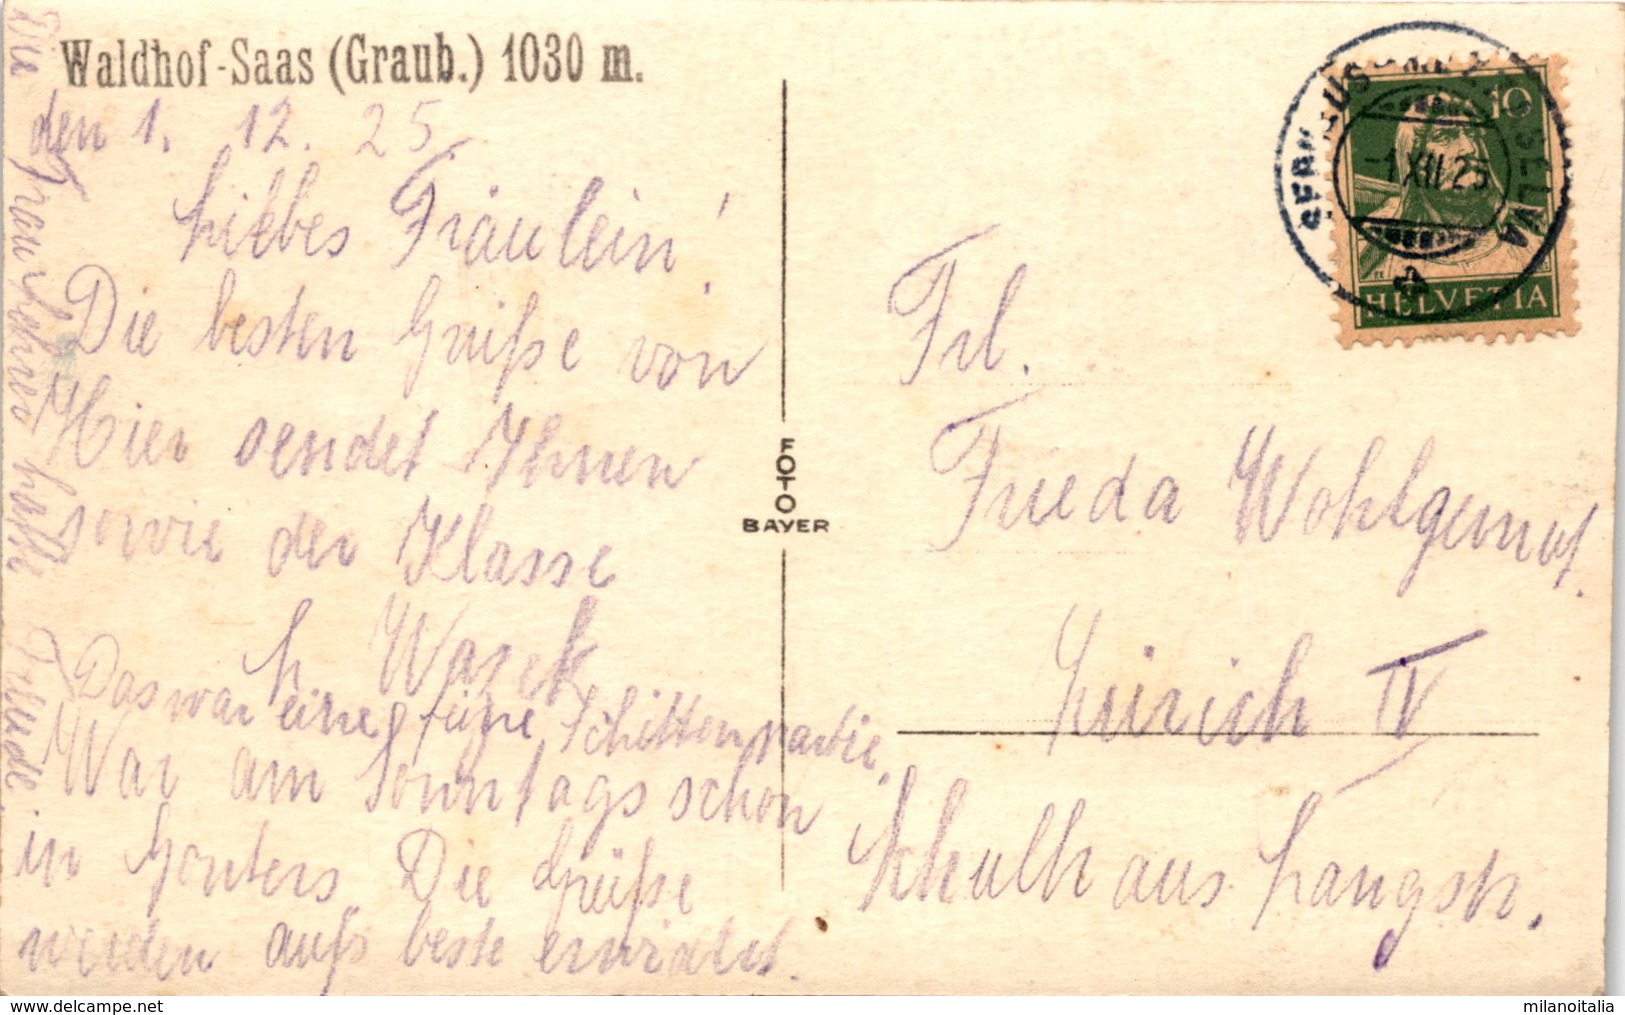 Waldhof-Saas (Graub.) 1030 m.
den 1. 12. 25.
Liebes Fräulein!
Die besten Grüße von
Hier sendet Ihnen
sowie der Klasse
Das war eine feine Schlittenpartie.
War am Sonntags schon
in Die Grüße
werden aufs beste erwidert.
Die Frau hatte Freude.
FOTO
BAYER
10
1 XII 25
HELVETIA
Frl.
Frieda Wohlgemut.
Zürich IV
Schulhaus Langstr.
www.delcampe.net
milanoitalia